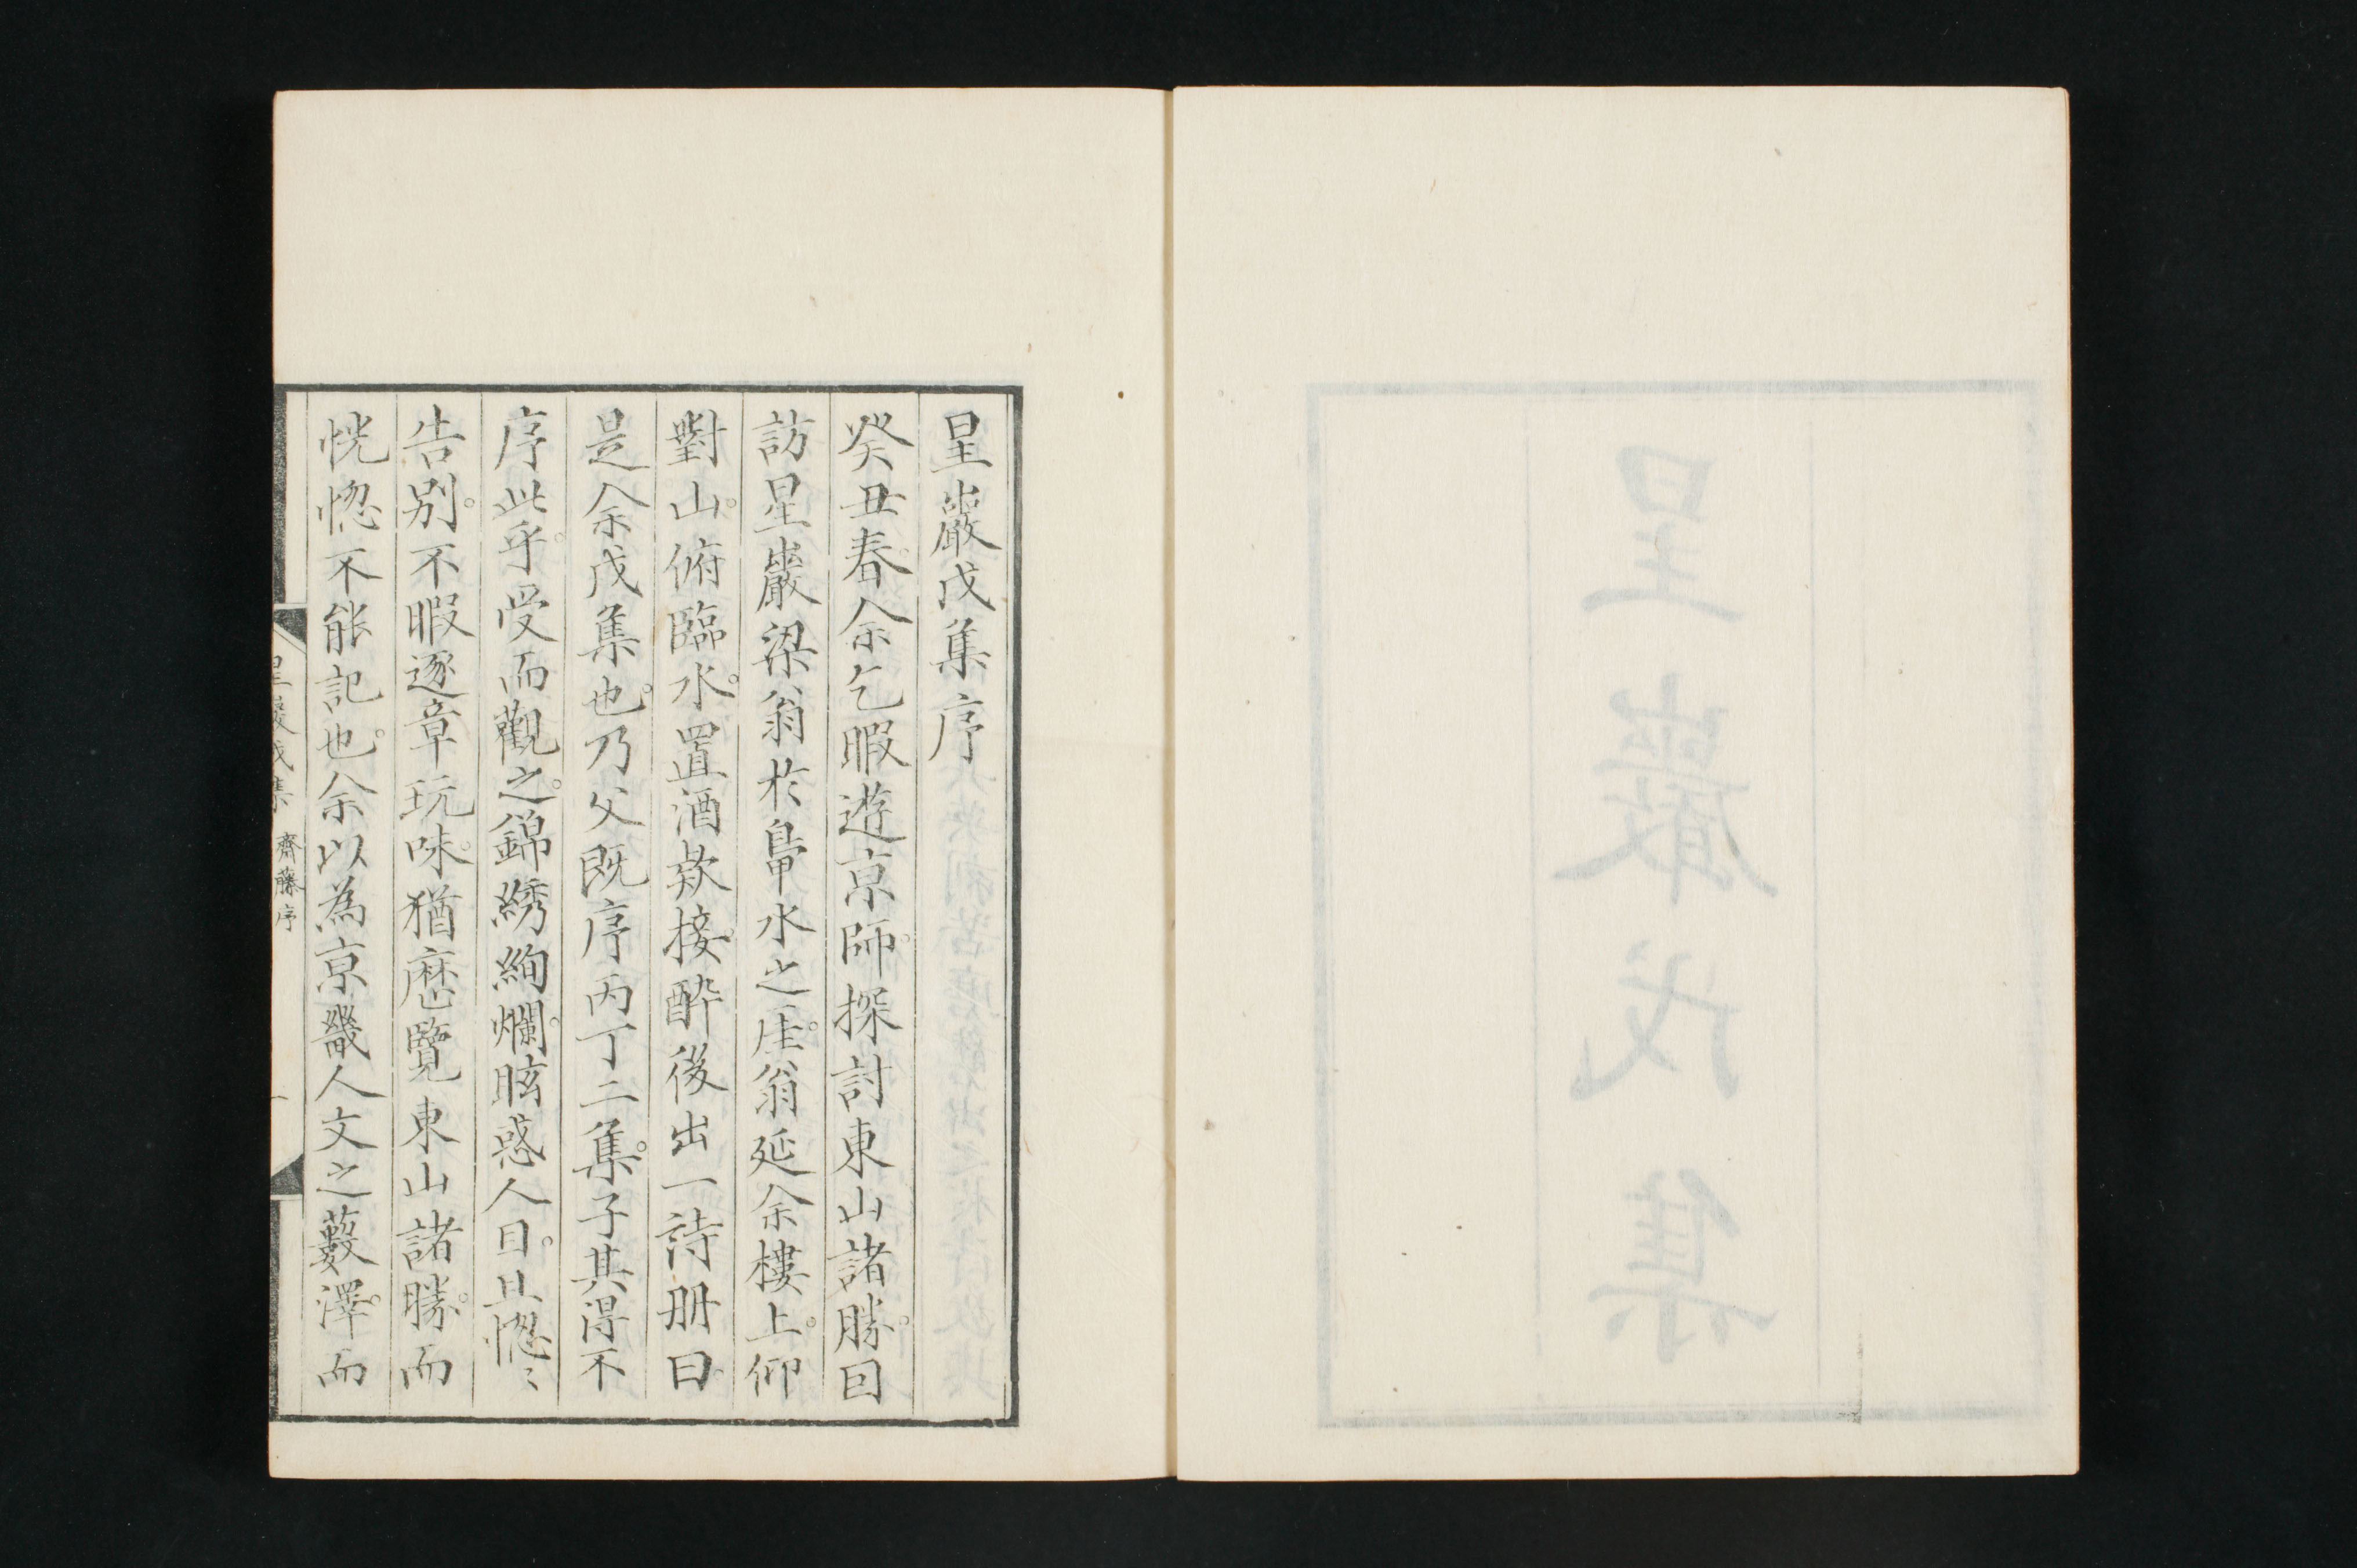 星巖戊集
星巖戊集序
癸丑春。余乞暇遊京師。探討東山諸勝。回
訪星巖梁翁於鳧水之㕓。翁延余樓上。仰
對山。俯臨水。置酒欵接。酔後出一詩册曰
是余戊集也。乃父既序丙丁二集。子其得不
序此乎。受而觀之。錦綉絢爛。眩惑人目。且惚〻
告別。不暇逐章玩味。猶歴覽東山諸勝。而
恍惚不能記也。余以為京畿人文之藪澤。而
星巖戊集 齋藤序 一